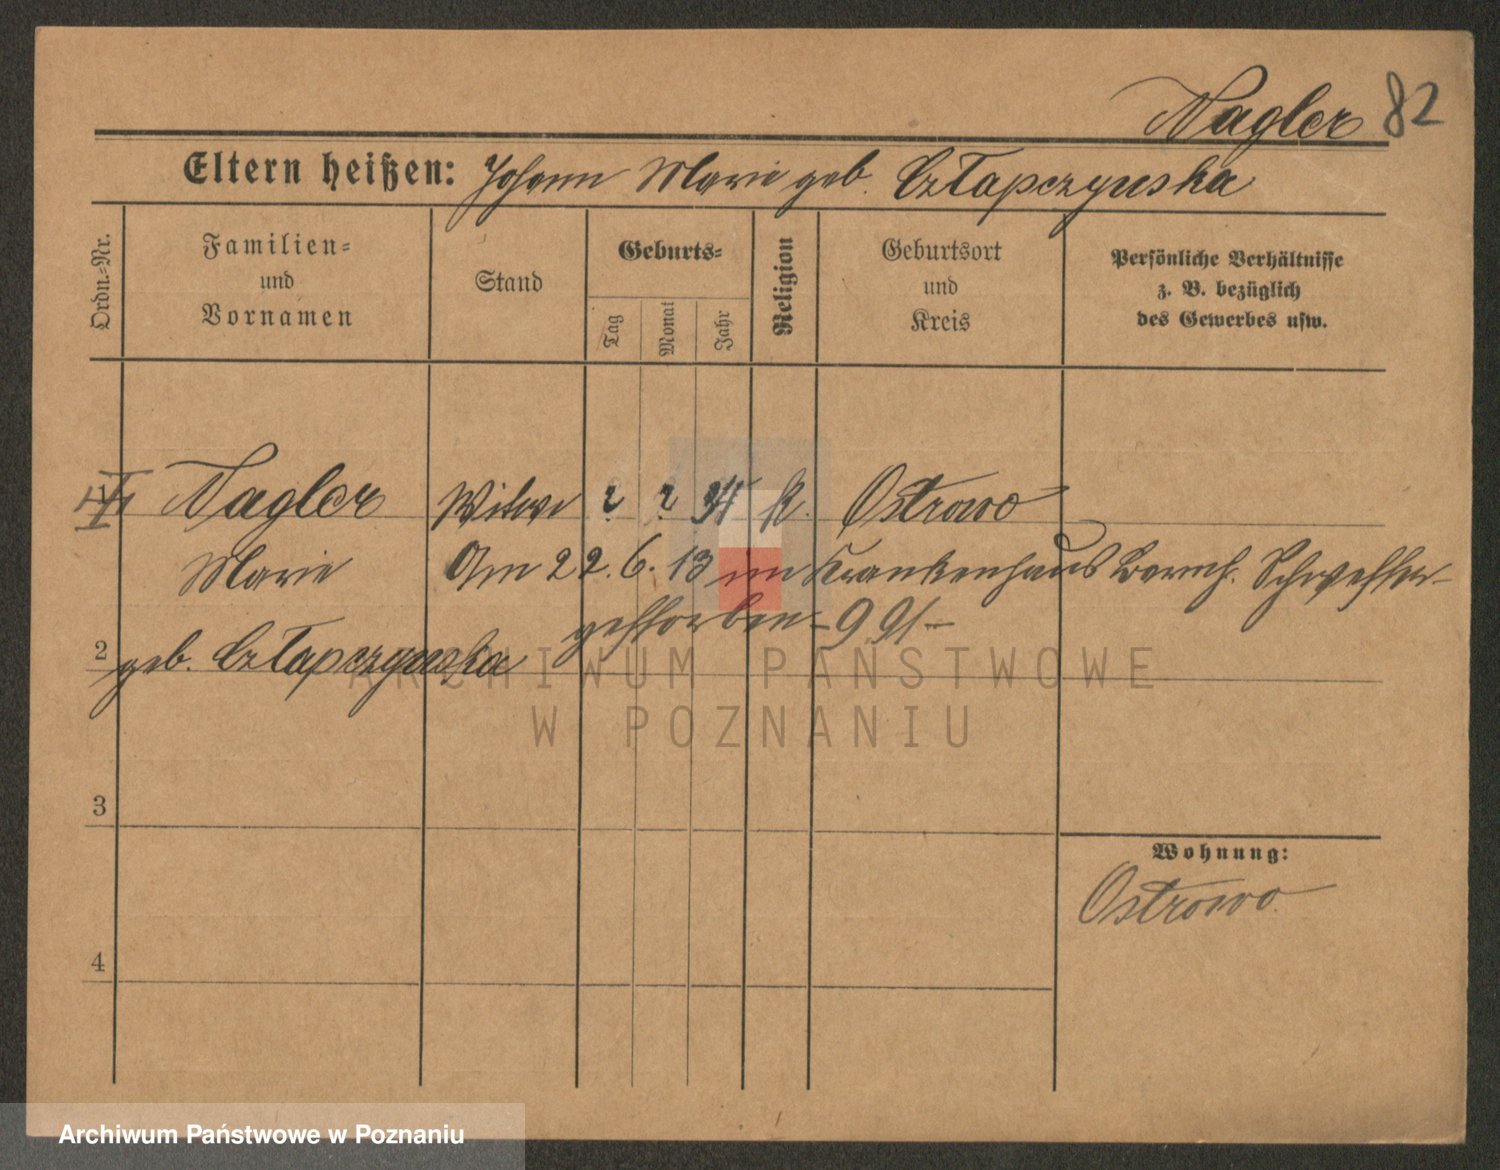 Nagler 82
Eltern heißen: Johann Marie geb. Człapczynska
Ordn.-Nr.
Familien-
und
Vornamen
Stand
Geburts-
Tag
Monat
Jahr
Religion
Geburtsort
und
Kreis
Persönliche Verhältnisse
z. B. bezüglich
des Gewerbes usw.
Nagler Witwe ? ? k. Ostrowo
Marie Am 22.6.13 im Krankenhaus Barmh. Schwestern
gestorben
2 geb. Człapczynska
ARCHIWUM PAŃSTWOWE
W POZNANIU
3
Wohnung:
Ostrowo
4
Archiwum Państwowe w Poznaniu